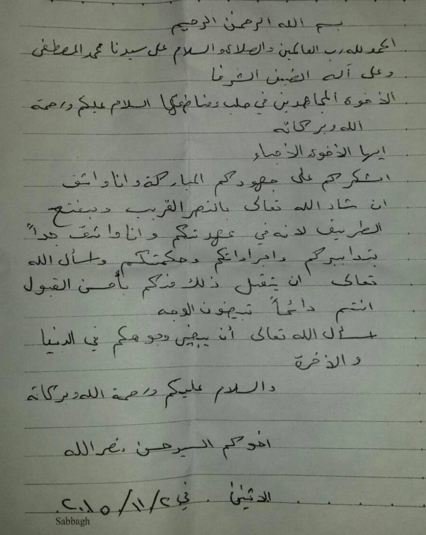 بسم الله الرحمن الرحيم
الحمد لله رب العالمين والصلاة والسلام على سيدنا محمد المصطفى
وعلى آله الشرفا
الاخوة المجاهدين في حلب ومناطقها السلام عليكم ورحمة
الله وبركاته
ايها الاخوة الاحباء
اشكركم على جهودكم المباركة وانا واثق
ان شاء الله تعالى بالنصر القريب وبفتح
الطريق لانه في عهدتكم وانا واثق جداً
بتدابيركم واجراءاتكم وحكمتكم واسأل الله
تعالى ان يتقبل ذلك منكم بأحسن القبول
انتم دائماً تبيضون الوجه
اسأل الله تعالى أن يبيض وجوهكم في الدنيا
والآخرة
والسلام عليكم ورحمة الله وبركاته
اخوكم السيد حسن نصر الله
الاثنين في ٢/١١/٢٠١٥
Sabbagh